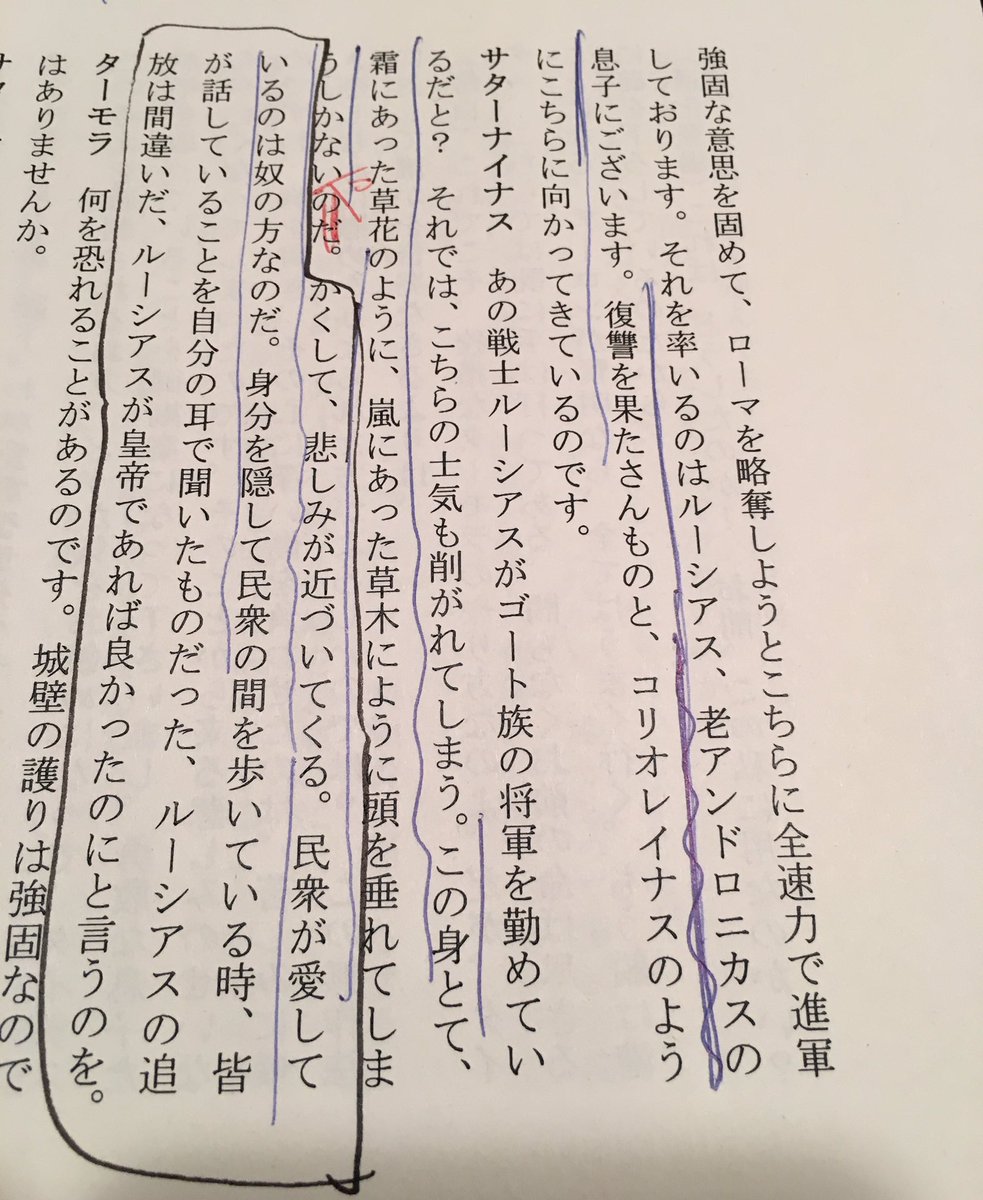 強固な意思を固めて、ローマを略奪しようとこちらに全速力で進軍
しております。それを率いるのはルーシアス、老アンドロニカスの
息子にございます。復讐を果たさんものと、コリオレイナスのよう
にこちらに向かってきているのです。
サターナイナス　あの戦士ルーシアスがゴート族の将軍を勤めてい
るだと？　それでは、こちらの士気も削がれてしまう。この身とて、
霜にあった草花のように、嵐にあった草木にように頭を垂れてしま
うしかないのだ。かくして、悲しみが近づいてくる。民衆が愛して
いるのは奴の方なのだ。身分を隠して民衆の間を歩いている時、皆
が話していることを自分の耳で聞いたものだった、ルーシアスの追
放は間違いだ、ルーシアスが皇帝であれば良かったのにと言うのを。
ターモラ　何を恐れることがあるのです。城壁の護りは強固なので
はありませんか。